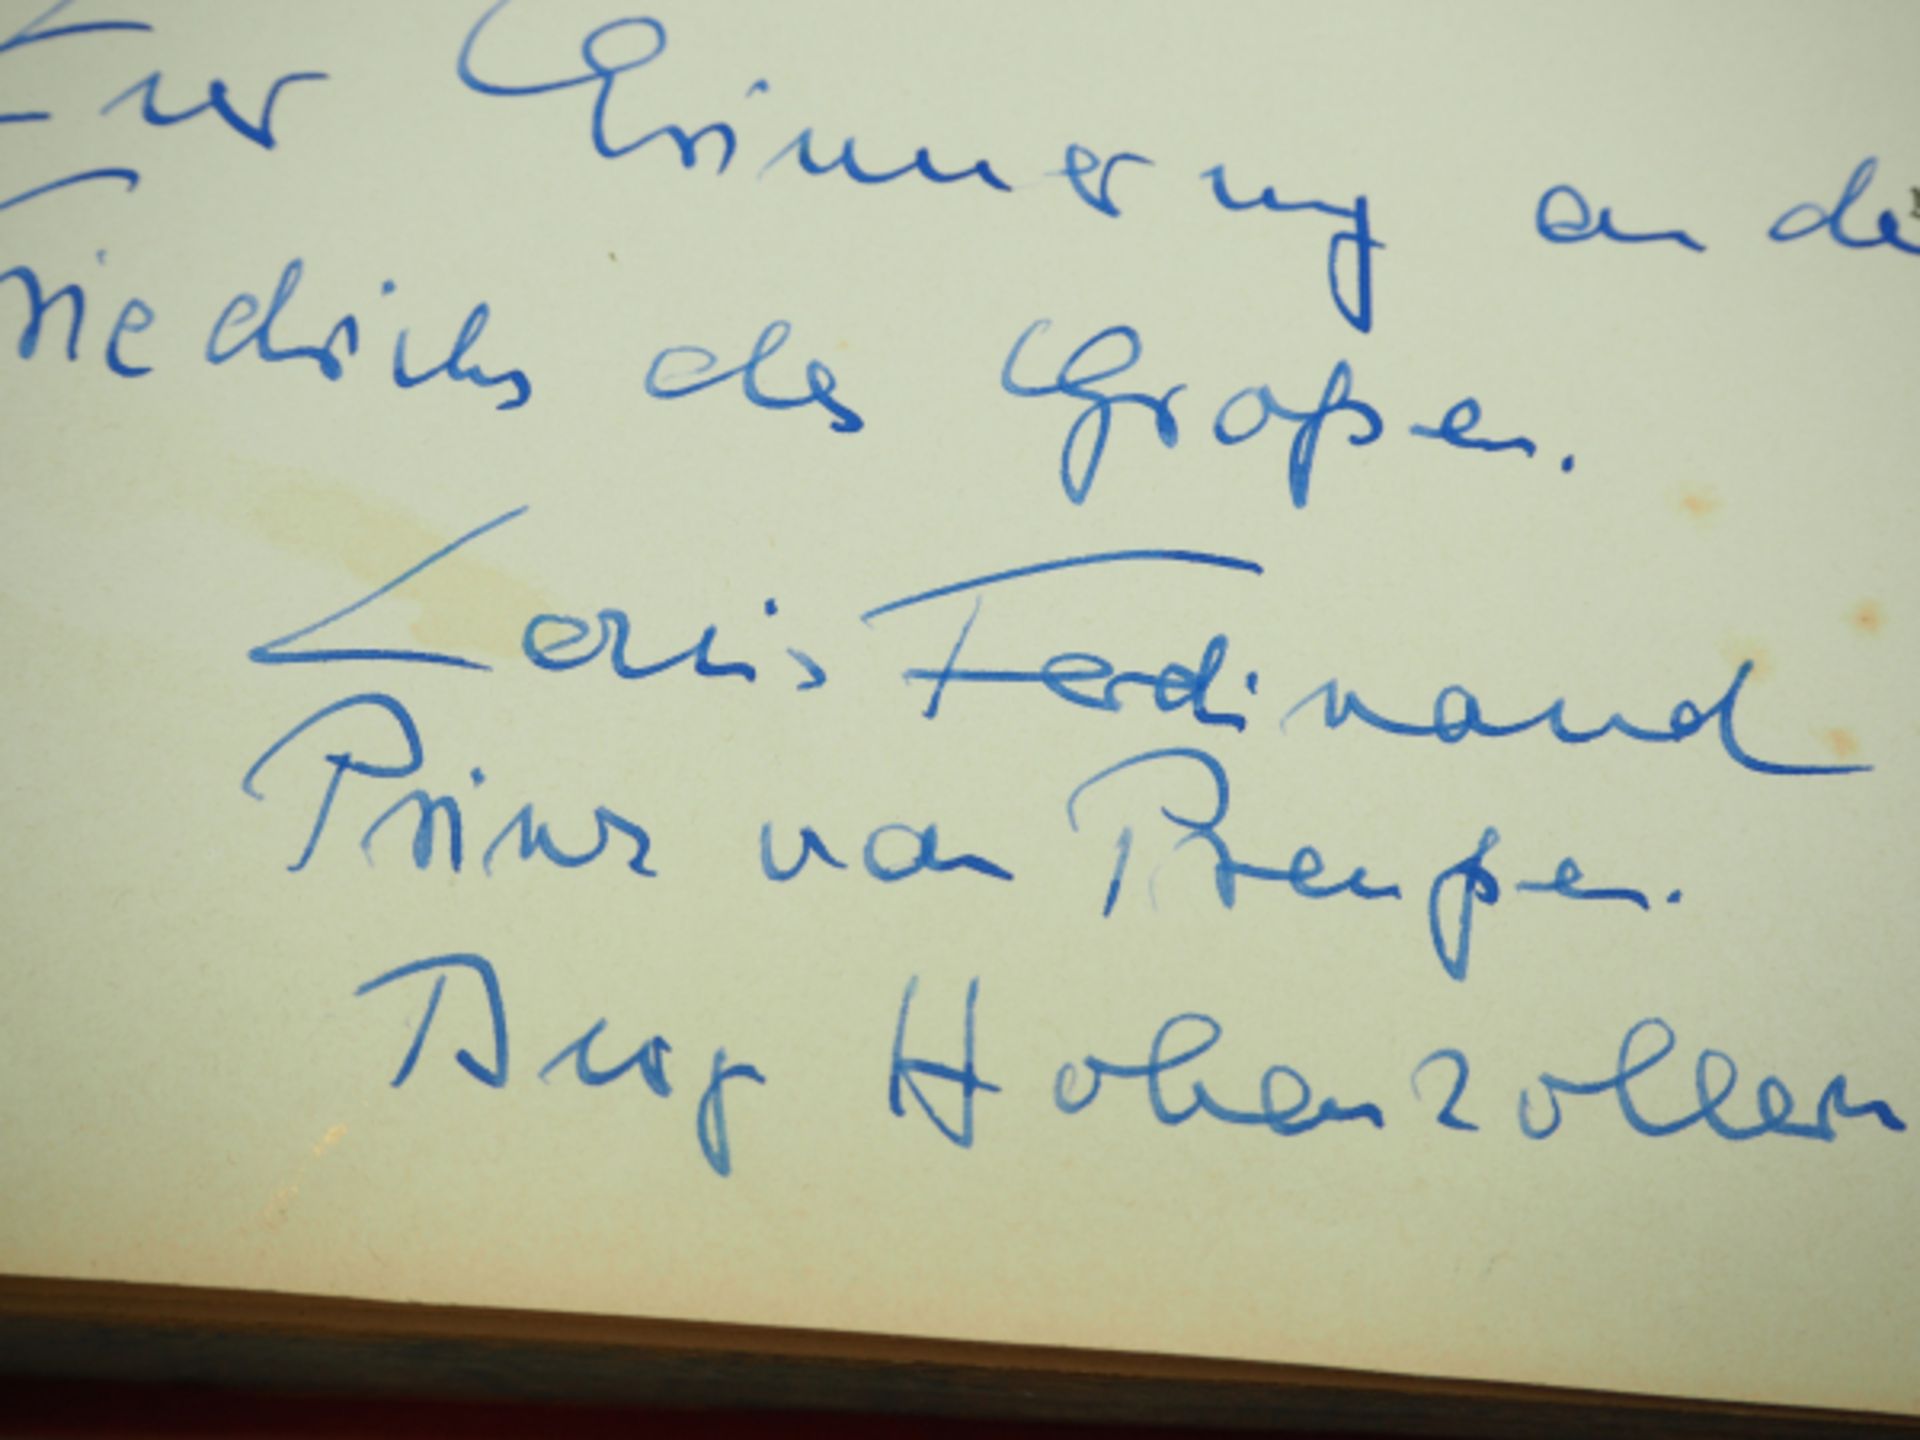 Zur Erinnerung an de
Friedrichs des Großen.
Louis Ferdinand
Prinz von Preußen.
Burg Hohenzollern